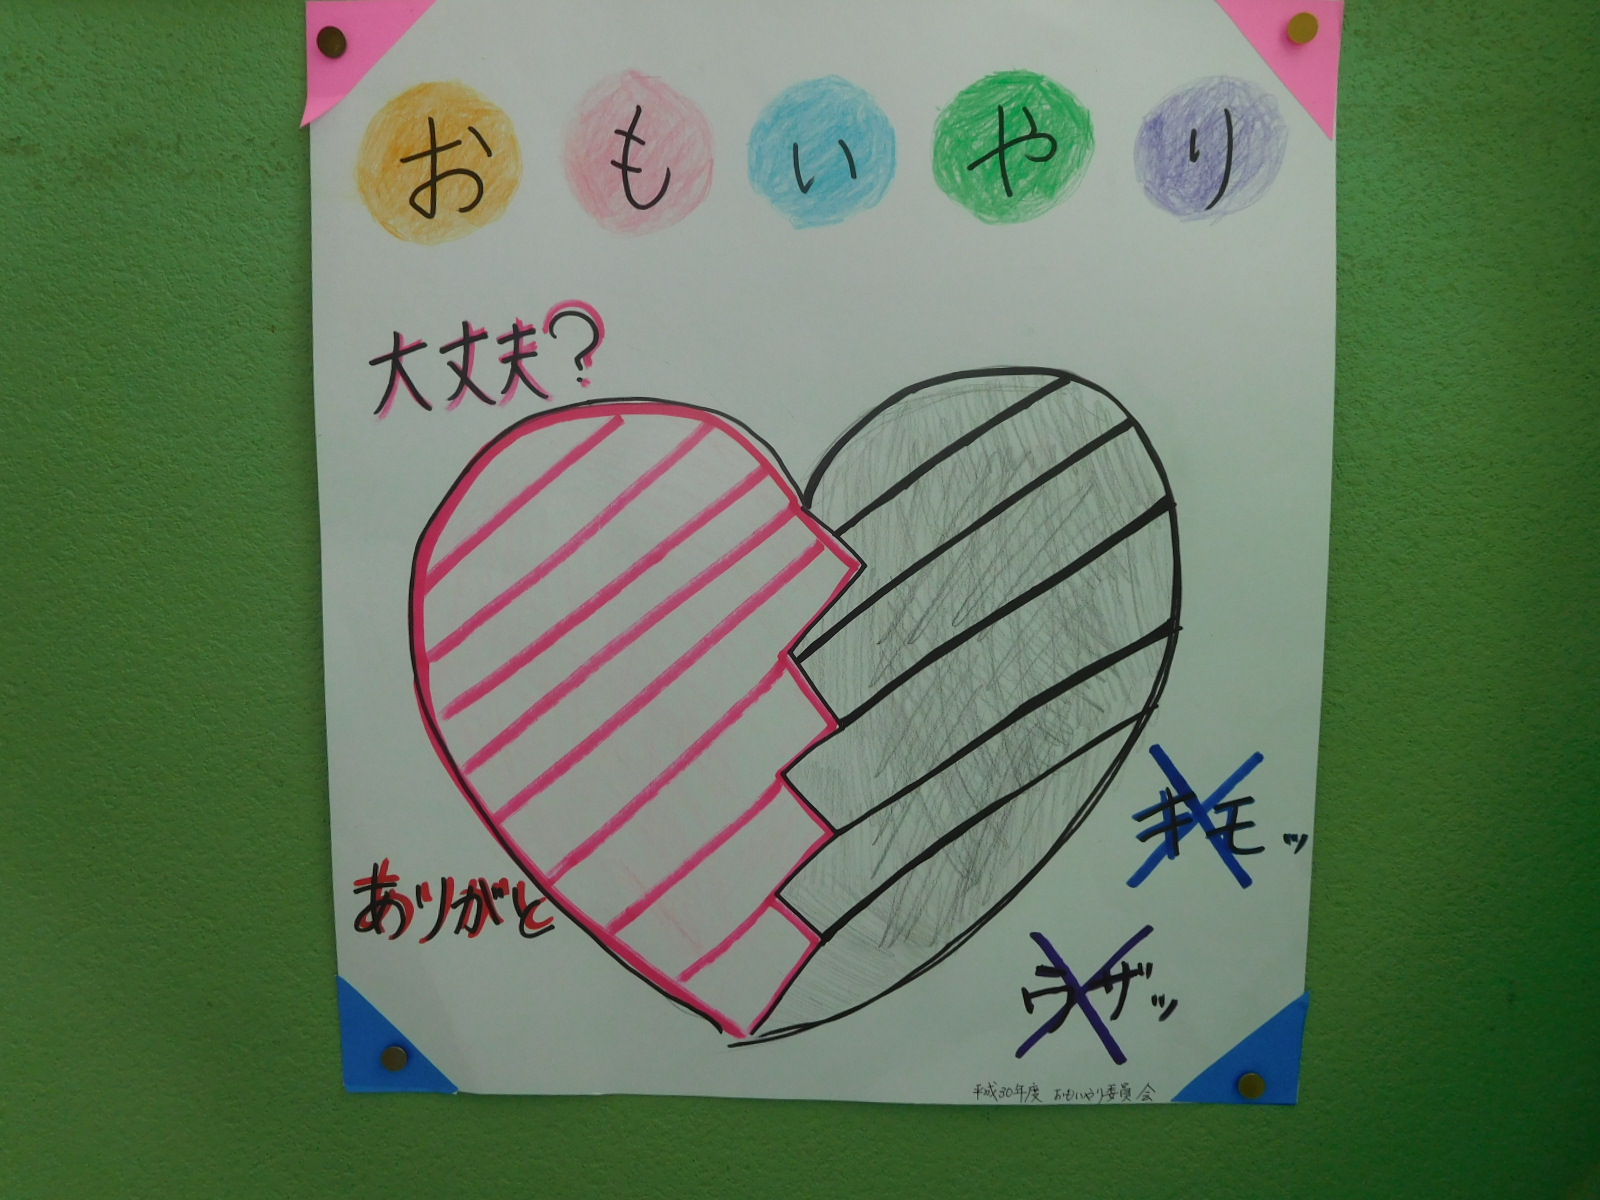 おもいやり
大丈夫?
キモッ
ありがと
ウザッ
平成30年度 おもいやり委員会